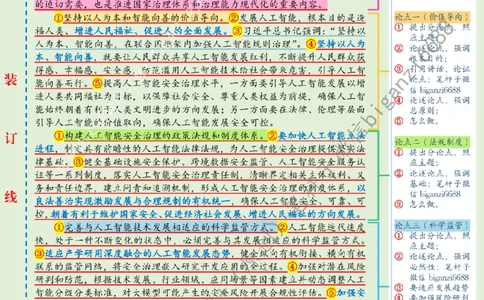 的迫切需要，也是推进国家治理体系和治理能力现代化的重要内容。
①坚持以人为本和智能向善的价值导向。②发展人工智能，根本目的是造
福人类、增进人民福祉、促进人的全面发展。③习近平总书记强调：“坚持以
人为本、智能向善，在联合国框架内加强人工智能规则治理”。④坚持以人为
本、智能向善，就要让人民群众共享人工智能发展红利，不断提升人民群众获
得感、幸福感、安全感，防范滥用人工智能技术给社会带来危害，引导人工智
能向善而行。⑤提高人工智能安全治理水平，一方面要引导人工智能发展以增
进人类共同福祉为目标，以保障社会安全、尊重人类权益为前提，确保人工智
能始终朝着有利于人类文明进步的方向发展；另一方面要在法律、伦理等层面
引导人工智能的价值取向，确保人工智能发展安全可控。
①构建人工智能安全治理的政策法规和制度体系。②要加快人工智能立法
进程，制定具有前瞻性的人工智能法律法规，为人工智能安全治理提供坚实法
律基础。③健全基础设施安全保护、跨境数据安全监管、人工智能安全服务认
证等一系列制度，落实人工智能安全治理责任制，清晰界定相关主体权利、义
务和责任边界，建立问责和追溯机制，形成人工智能安全治理的制度体系，以
良法善治实现激励发展与合理规制的有机统一，确保人工智能安全、可靠、可
控，朝着有利于维护国家安全、促进经济社会发展、增进人民福祉的方向发展。
①完善与人工智能技术发展相适应的科学监管方式。②人工智能迭代速度
快，处于一种不断变化的状态中，必须完善与其发展相适应的科学监管方式。
③适应产学研用深度融合的人工智能发展态势，健全纵向有机衔接、横向有机
联系的监管网络，将安全治理嵌入研究开发应用的全过程。④加强对潜在风险
研判和防范，根据技术发展、行业领域、应用场景等因素建立并动态调整人工
智能分级分类标准，对大模型可能产生的安全风险开展合规性评估。⑤加强安
装
订
线
论点一（价值导向）
① 提出分论点，照
应主题；
② 论述论点，强调
根本目的；
③ 引用讲话，论证
论点；笔杆子微
信 biganzi6688
④ 论述论点，强调
总原则；
⑤ 论述论点，强调
怎么做。
论点二（法规制度）
① 提出分论点，照
应主题；
② 论述论点，强调
基础；笔杆子微
信 biganzi6688
③ 论述论点，强调
怎么做。
论点三（科学监管）
① 提出分论点，照
应主题；
② 论述论点，强调
必要性；笔杆子
微信 biganzi6688
③ 要适应发展趋势
④ 要加强风险研判